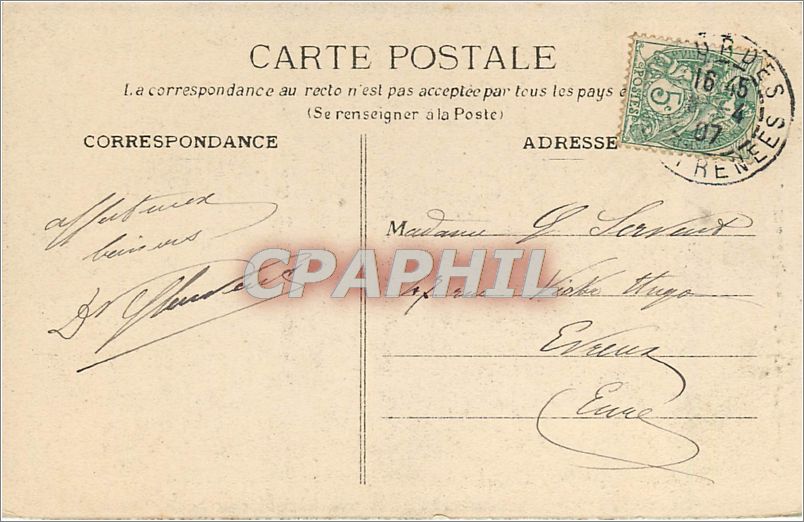 CARTE POSTALE
La correspondance au recto n'est pas acceptée par tous les pays
(Se renseigner à la Poste)
CORRESPONDANCE
ADRESSE
POSTES
5
RDES
16 45
4
07
RENEES
affectueux
baisers
Dr
Madame G Servant
rue Victor Hugo
Evreux
Eure
CPAPHIL